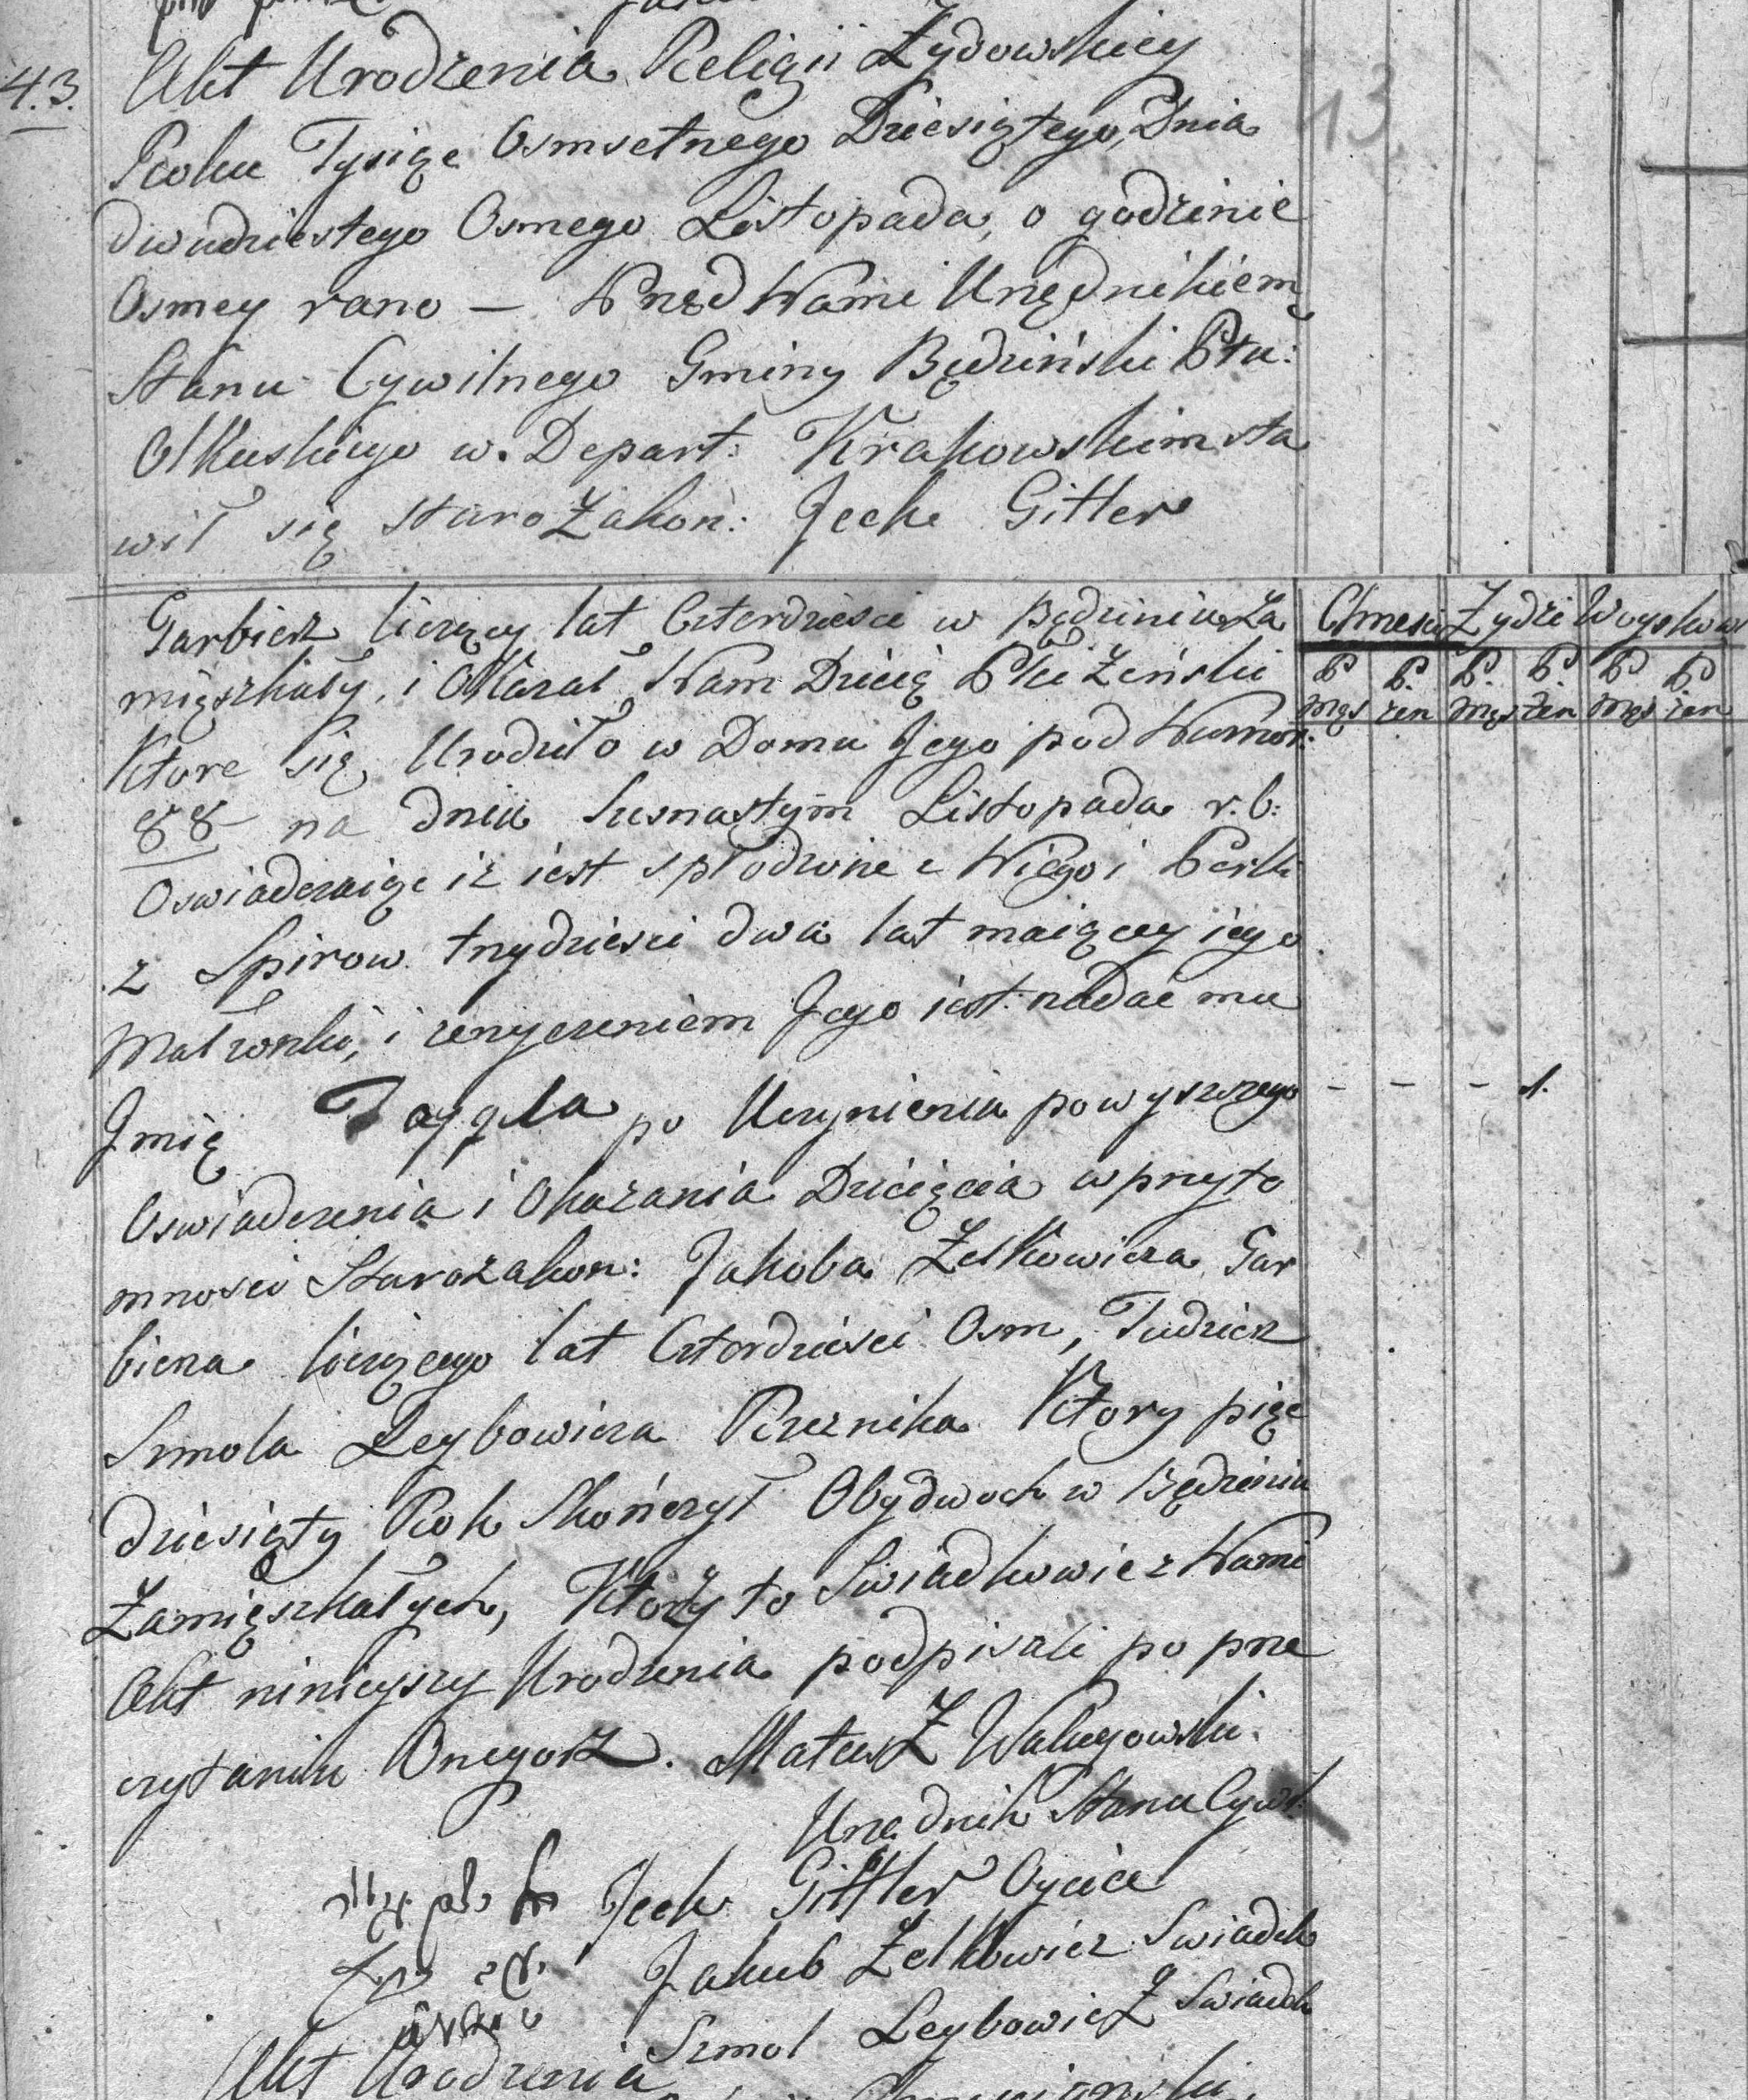 43. Akt Urodzenia Religii Żydowskiey
13
Roku Tysiąc Osmsetnego Dziesiątego, Dnia
dwudziestego Osmego Listopada, o godzinie
Osmey rano — Przed Nami Urzędnikiem
Stanu Cywilnego Gminy Będziński Ptu:
Olkuskiego w. Depart: Krakowskim sta
wił się staroZakon: Jcek Gitler
Garbierz liczący lat Czterdziesci w Będziniu Za
mięszkały, i Okazał Nam Dziecię Płci Zeński
Ktore się Urodziło w Domu Jego pod Numer:
88 na dniu Szesnastym Listopada r. b:
Oswiadczaiąc iż iest spłodzone z Niego i Perli
z Spirow trzydziesci dwa lat maiący iego
Małzonki, i zyczeniem Jego iest nadac mu
Jmię Taygla po Uczynieniu powyszszego - - - 1.
Oswiadczenia i Okazania Dziecięcia w przyto
mnosci Starozakon: Jakoba Zelkowicza Gar
bierza liczącego lat Czterdziesci Osm, Tudzierz
Szmola Leybowicza Rzeznika Ktory pięc
dziesiąty Rok Skończył Obydwoch w Będziniu
Zamięszkałych, Ktorzy to Swiadkowie z Nami
Akt ninieyszy Urodzenia podpisali po prze
czytaniu Onegosz. MateusZ Walugowski
Urzędnik Stanu Cywil:
Jcek Gittler Oyciec
Jakub Zelkowicz Swiadek
Szmol LeybowicZ Swiadek
Akt Urodzenia
Chrzesci Żydzi Woyskow
P P. P. P. P P
męs zen męs żen męs zen